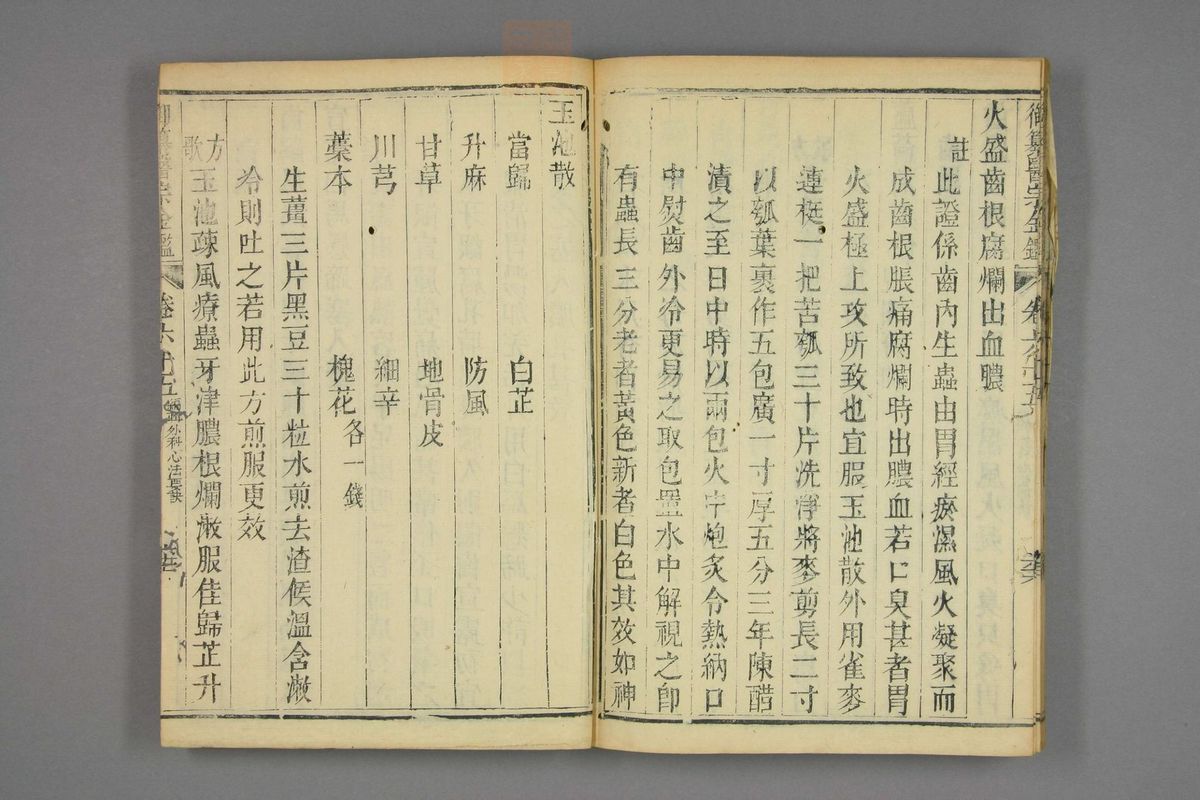 御纂醫宗金鑑
火盛齒根腐爛出血膿
註
此證係齒內生蟲由胃經瘀濕風火凝聚而
成齒根脹痛腐爛時出膿血若口臭甚者胃
火盛極上攻所致也宜服玉池散外用雀麥
連梃一把苦瓠三十片洗淨將麥剪長二寸
以瓠葉裹作五包廣一寸厚五分三年陳醋
漬之至日中時以兩包火中炮炙令熱納口
中熨齒外冷更易之取包置水中解視之卽
有蟲長三分老者黃色新者白色其效如神
玉池散
當歸 白芷
升麻 防風
甘草 地骨皮
川芎 細辛
藁本 槐花各一錢
生薑三片黑豆三十粒水煎去渣候溫含漱
冷則吐之若用此方煎服更效
方歌 玉池疎風療蟲牙津膿根爛漱服佳歸芷升
御纂醫宗金鑑 卷六十五 外科心法要訣